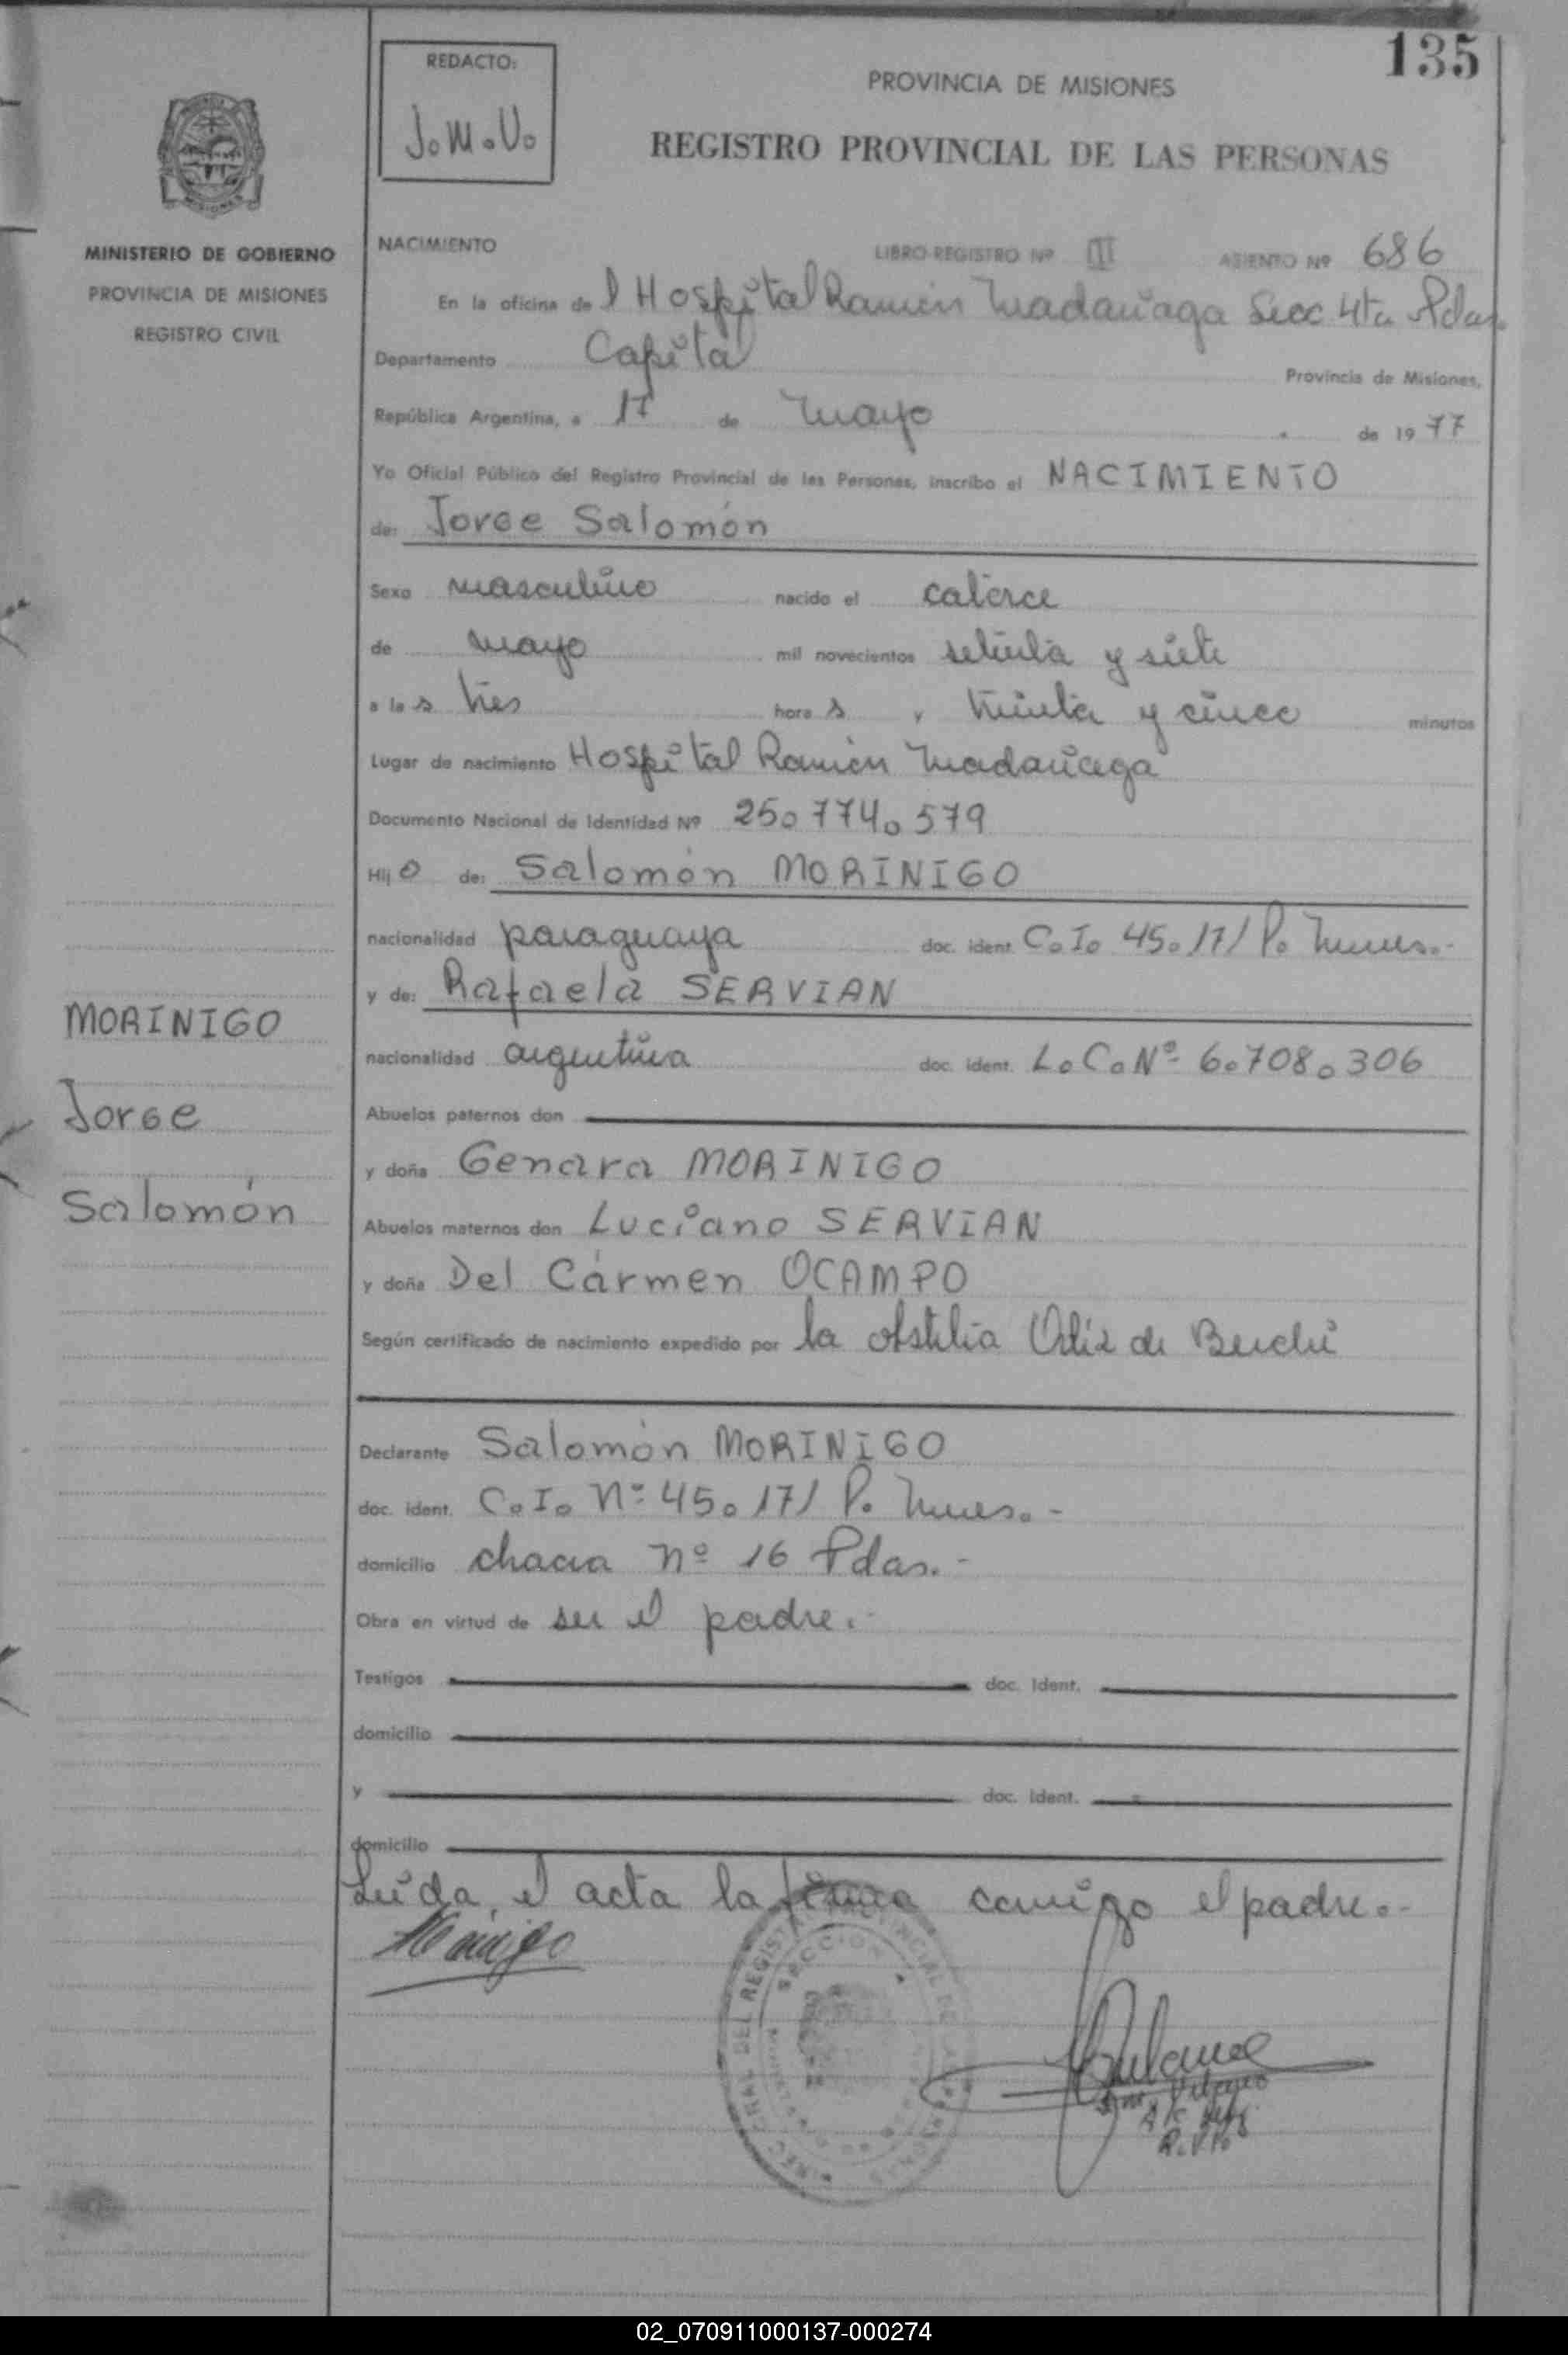 135
REDACTO:
J.M.V.
PROVINCIA DE MISIONES
REGISTRO PROVINCIAL DE LAS PERSONAS
MINISTERIO DE GOBIERNO
PROVINCIA DE MISIONES
REGISTRO CIVIL
NACIMIENTO LIBRO-REGISTRO Nº III ASIENTO Nº 686
En la oficina del Hospital Ramón Madariaga Secc 4ta Pdas.
Departamento Capital Provincia de Misiones,
República Argentina, a 17 de Mayo de 1977
Yo Oficial Público del Registro Provincial de las Personas, inscribo el NACIMIENTO
de: Jorge Salomón
Sexo masculino nacido el catorce
de mayo mil novecientos setenta y siete
a las tres horas y treinta y cinco minutos
Lugar de nacimiento Hospital Ramón Madariaga
Documento Nacional de Identidad Nº 25.774.579
Hijo de: Salomón MORINIGO
nacionalidad paraguaya doc. ident. C.I. 45.171 P. Mnes.-
y de: Rafaela SERVIAN
nacionalidad argentina doc. ident. L.C.Nº 6.708.306
Abuelos paternos don
y doña Genara MORINIGO
Abuelos maternos don Luciano SERVIAN
y doña Del Cármen OCAMPO
Según certificado de nacimiento expedido por la obstetra de
Declarante Salomón MORINIGO
doc. ident. C.I. Nº 45.171 P. Mnes.-
domicilio chacra nº 16 Pdas.-
Obra en virtud de ser el padre.-
Testigos doc. Ident.
domicilio
y doc. Ident.
domicilio
Leída el acta la firma conmigo el padre.-
MORINIGO
Jorge
Salomón
02_070911000137-000274